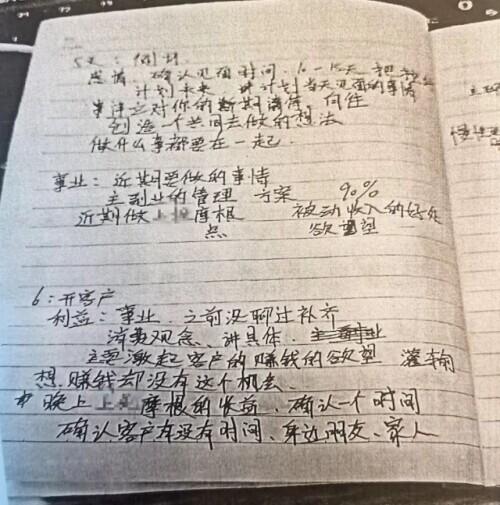 5天:倒计
感情、确认见面时间、10-15天 把
计划未来 讲计划当天见面的事情
事件之对你的 期 向往
创造一个共同去做的想法
做什么事都要在一起.
事业:近期要做的事情
主副业的管理 方案 90%
近期做上 摩根 被动收入的好处
点 欲望
6:开客户
利益:事业、之前没聊过补齐
消费观念、讲具体、
主要激起客户的赚钱的欲望 灌输
想赚钱却没有这个机会、
晚上 上 摩根的收益、确认一个时间
确认客户有没有时间、身边朋友、家人